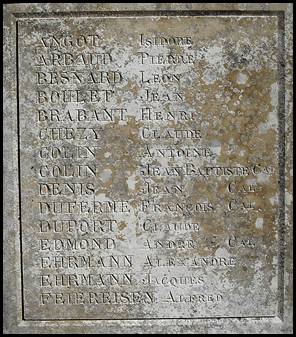 ANGOT ISIDORE
ARBAUD PIERRE
BESNARD LÉON
BOULET JEAN
BRABANT HENRI
CHEZY CLAUDE
COLIN ANTOINE
COLIN JEAN BAPTISTE CAL
DENIS JEAN CAL
DUFERME FRANÇOIS CAL
DUPORT CLAUDE
EDMOND ANDRÉ CAL
EHRMANN ALEXANDRE
EHRMANN JACQUES
FEIERREISEN ALFRED